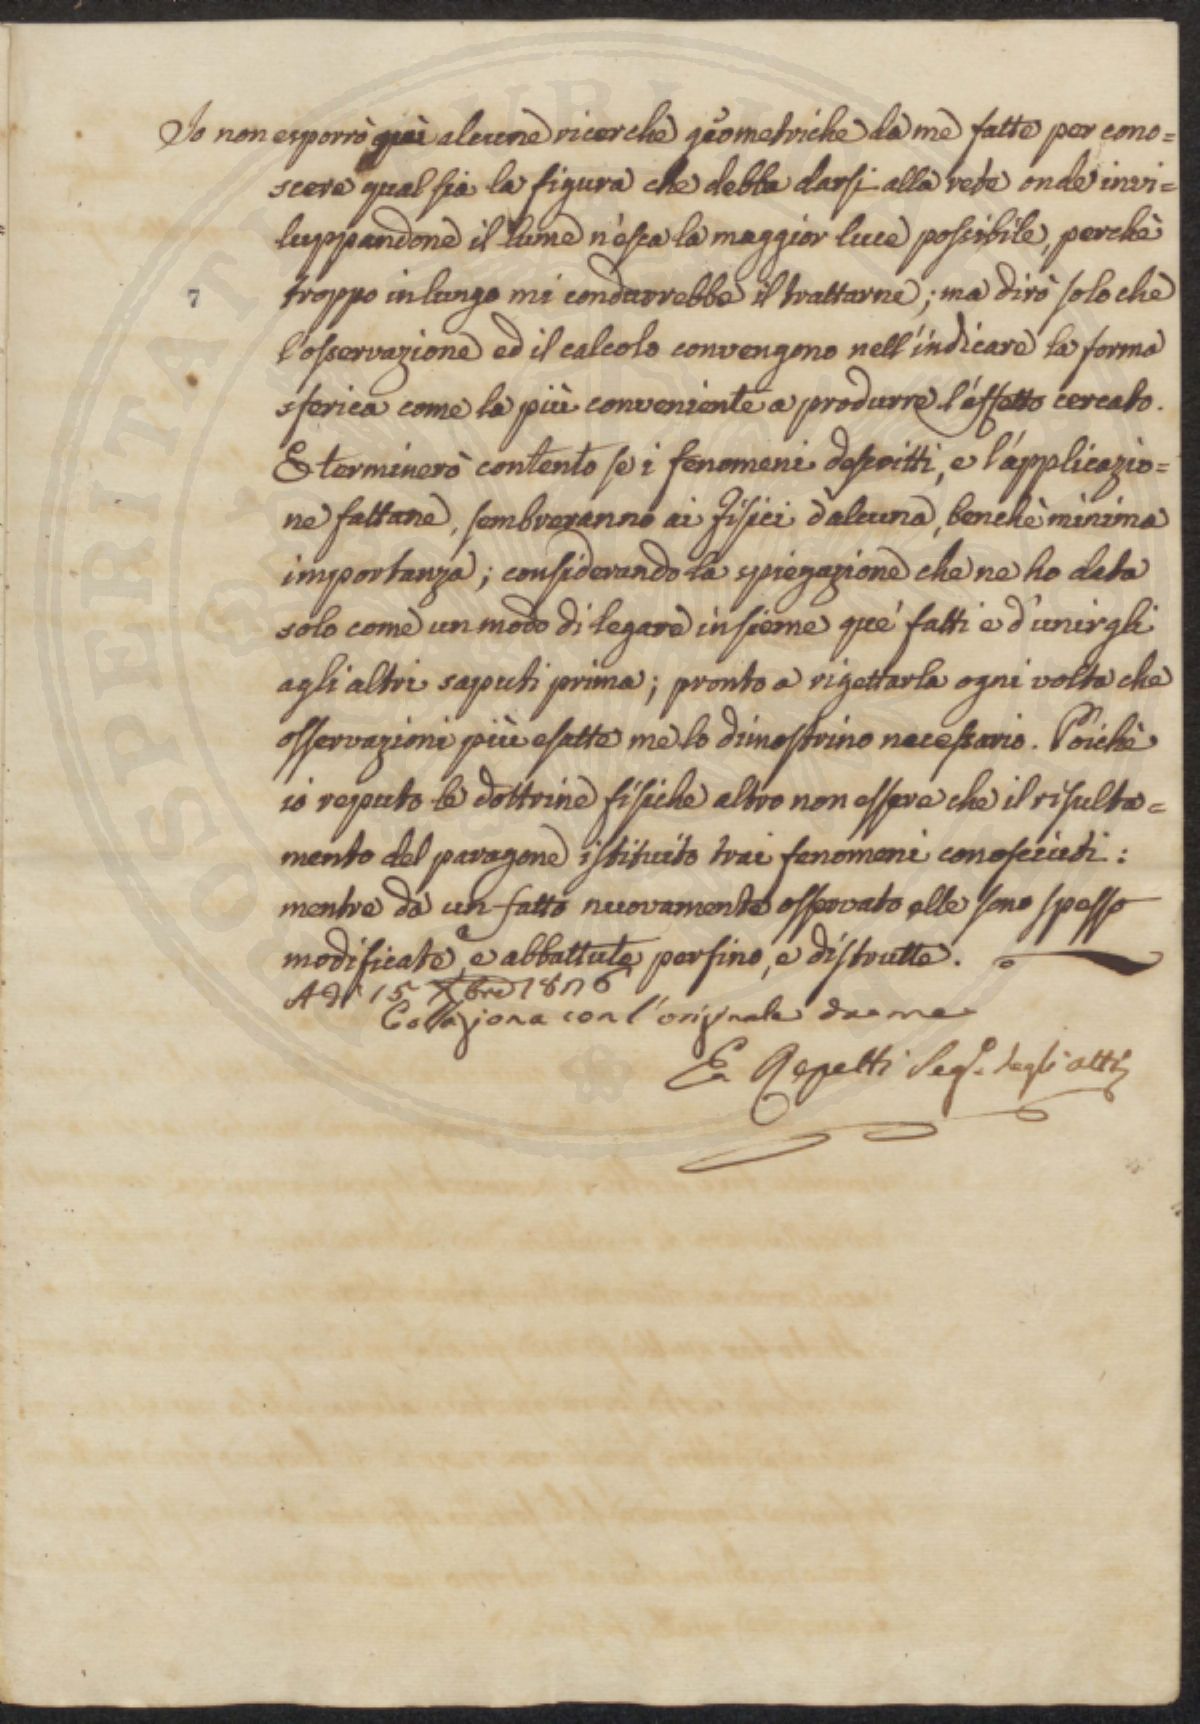 Io non esporrò quì alcune ricerche geometriche da me fatte per cono=
scere qual sia la figura che debba darsi alla rete onde invi=
luppandone il lume n'esca la maggior luce possibile, perchè
7 troppo in lungo mi condurrebbe il trattarne; ma dirò solo che
l'osservazione ed il calcolo convengono nell'indicare la forma
sferica come la più conveniente a produrre l'effetto cercato.
E terminerò contento se i fenomeni descritti, e l'applicazio=
ne fattane, sembreranno ai Fisici d'alcuna, benchè minima
importanza; considerando la spiegazione che ne ho data
solo come un modo di legare insieme que' fatti e d'unirgli
agli altri saputi prima; pronto a rigettarla ogni volta che
osservazioni più esatte me lo dimostrino necessario. Poichè
io reputo le dottrine fisiche altro non essere che il risulta=
mento del paragone istituito trai fenomeni conosciuti:
mentre da un fatto nuovamente osservato elle sono spesso
modificate, e abbattute perfino, e distrutte.
A dì 15 Xbre
Collazionata con l'originale da me
E. Repetti Seg.o degli atti